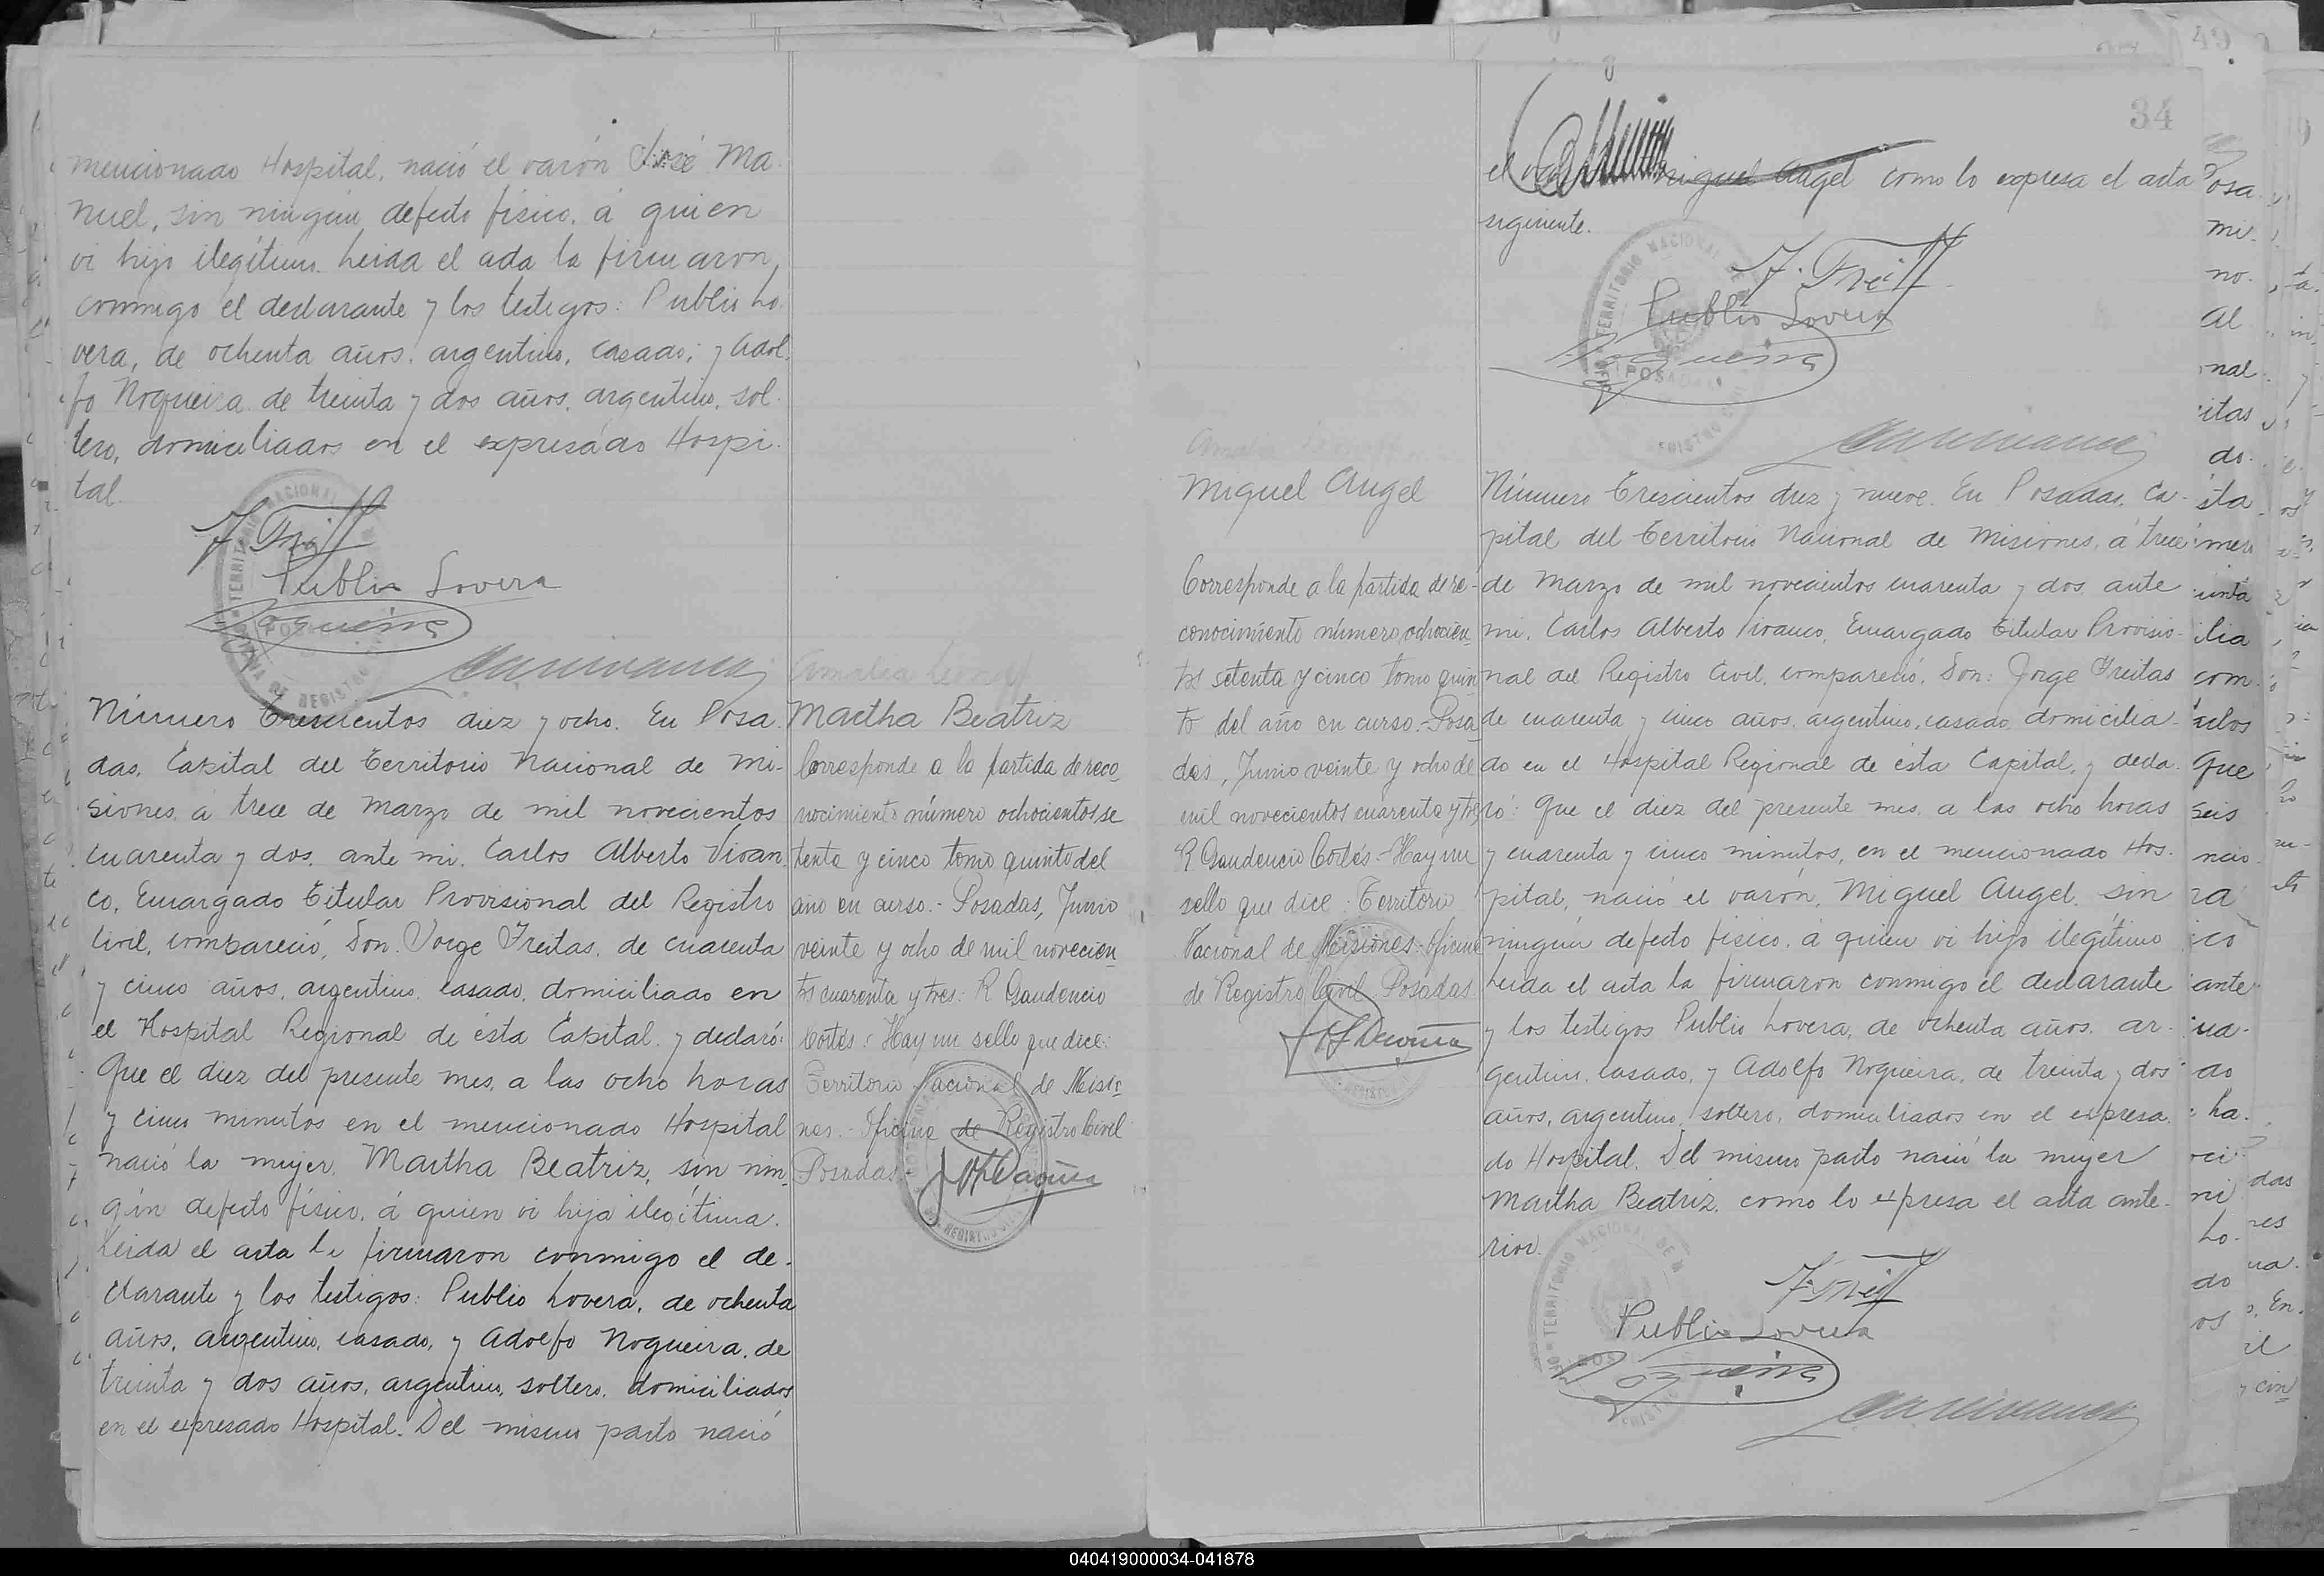 mencionado Hospital, nació el varón José Ma-
nuel, sin ningún defecto físico, á quien
vi hijo ilegítimo. Leida el acta la firmaron
conmigo el declarante y los testigos: Publio Lo-
vera, de ochenta años, argentino, casado; y Adol-
fo Nogueira de treinta y dos años, argentino, sol-
tero, domiciliados en el expresado Hospi-
tal.
Publio Lovera
Nogueira
Número Trescientos diez y ocho. En Posa-
das, Capital del Territorio Nacional de Mi-
siones, á trece de Marzo de mil novecientos
cuarenta y dos, ante mi, Carlos Alberto Vivan-
co, Encargado Titular Provisional del Registro
Civil, compareció, Don: Jorge Freitas, de cuarenta
y cinco años, argentino, casado, domiciliado en
el Hospital Regional de ésta Capital, y declaró:
Que el diez del presente mes, a las ocho horas
y cinco minutos en el mencionado Hospital
nació la mujer, Martha Beatriz, sin nin-
gún defecto físico, á quien vi hija ilegítima.
Leida el acta la firmaron conmigo el de-
clarante y los testigos: Publio Lovera, de ochenta
años, argentino, casado, y Adolfo Nogueira, de
treinta y dos años, argentino, soltero, domiciliados
en el expresado Hospital. Del mismo parto nació
Martha Beatriz
Corresponde a la partida de reco-
nocimiento número ochocientos se
tenta y cinco tomo quinto del
año en curso.- Posadas, Junio
veinte y ocho de mil novecien
tos cuarenta y tres: R Gaudencio
Cortés: Hay un sello que dice:
Territorio Nacional de Misio
nes.- Oficina de Registro Civil
Posadas.-
34
el varón Miguel Angel como lo expresa el acta
siguiente.
Publio Lovera
Nogueira
Miguel Angel
Corresponde a la partida de re-
conocimiento número ochocien
tos setenta y cinco tomo quin
to del año en curso.- Posa
das, Junio veinte y ocho de
mil novecientos cuarenta y tres
R Gaudencio Cortés:- Hay un
sello que dice: Territorio
Nacional de Misiones: Oficina
de Registro Civil. Posadas
Número Trescientos diez y nueve. En Posadas, Ca-
pital del Territorio Nacional de Misiones, á trece
de Marzo de mil novecientos cuarenta y dos, ante
mi, Carlos Alberto Vivanco, Encargado Titular Provisio-
nal del Registro Civil, compareció, Don: Jorge Freitas
de cuarenta y cinco años, argentino, casado, domicilia-
do en el Hospital Regional de ésta Capital, y decla-
ró: Que el diez del presente mes, a las ocho horas
y cuarenta y cinco minutos, en el mencionado Hos-
pital, nació el varón, Miguel Angel, sin
ningún defecto físico, á quien vi hijo ilegítimo
Leida el acta la firmaron conmigo el declarante
y los testigos Publio Lovera, de ochenta años, ar-
gentino, casado, y Adolfo Nogueira, de treinta y dos
años, argentino, soltero, domiciliados en el expresa-
do Hospital. Del mismo parto nació la mujer
Martha Beatriz, como lo expresa el acta ante-
rior.
Publio Lovera
Nogueira
49
040419000034-041878